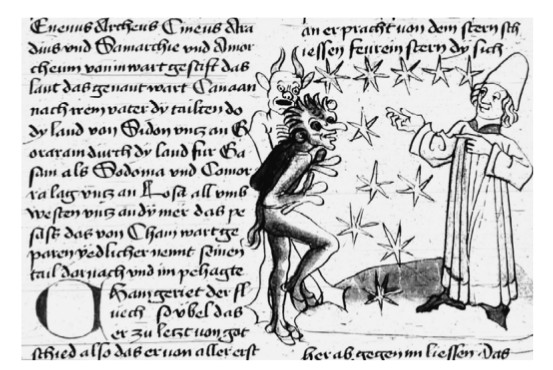 Euenus Archeus Cineus Ara
dius vnd Samarchie vnd Amor
cheum von in wart gestift das
laut das genant wart Canaan
nach irem vater dy tailten do
dy land von Sidon vntz an G
oraram durch dy land fur Ga
sam als Sodoma vnd Comor
ra lag vntz an Losa all vmb
westen vntz an dy mer das pe
sast das von Cham wart ge
paren yedlicher nennt seinen
tail dornach vnd im pehagte
Cham geriet der fl
uech so vbel das
er zu letzt von got
schied also das er von aller erst
an er pracht von dem stern sch
iessen feurein stern dy sich
her ab gegen im liessen Das